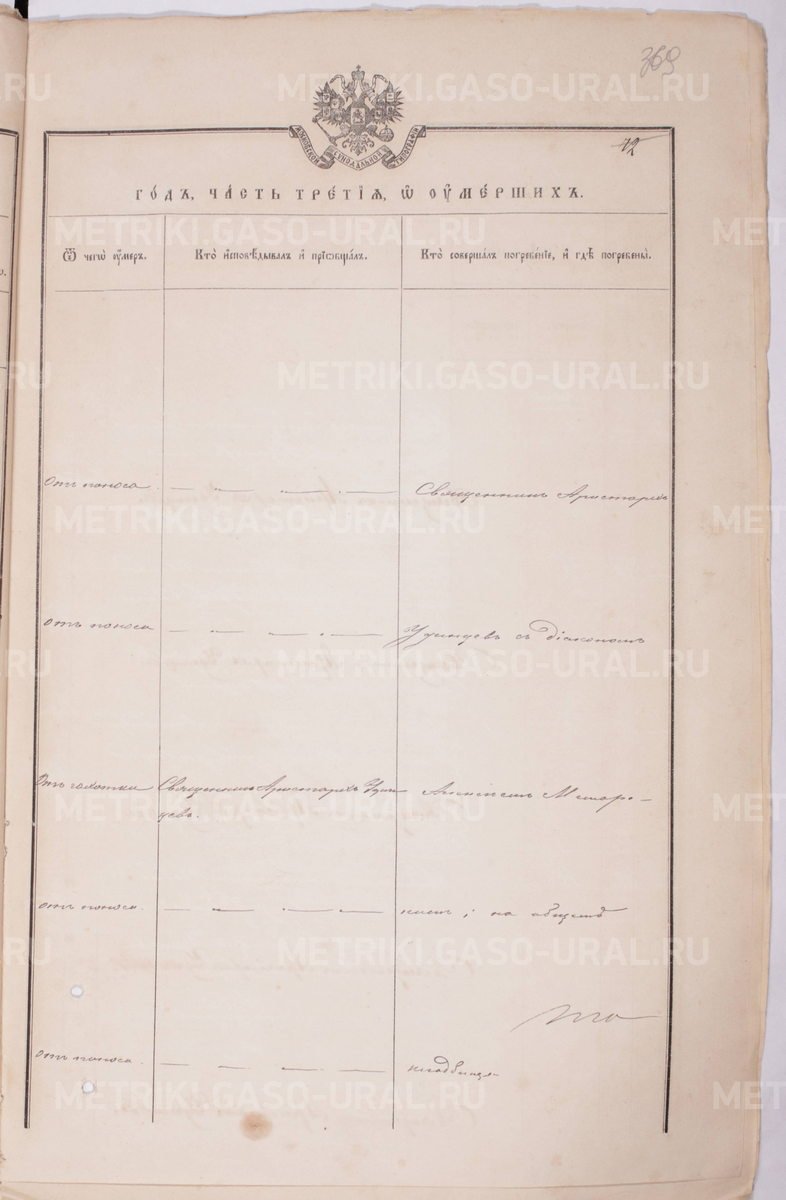 369
72
МОСКОВСКОЙ СѴНОДАЛЬНОЙ ТИПОГРАФІИ
ГО́ДЪ, ЧА́СТЬ ТРЕ́ТІѦ, Ѡ҆ ОУ҆МЕ́РШИХЪ.
Ѿ чегѡ̀ оу҆́меръ.
Кто̀ и҆сповѣ́дывалъ и҆ прїѡбща́лъ.
Кто̀ соверша́лъ погребе́нїе, и҆ гдѣ̀ погребены̀.
Отъ поноса
Священникъ Аристархъ
отъ поноса
Удинцевъ съ діакономъ
Отъ чахотки
Священникъ Аристархъ Удин
цевъ.
Алексіемъ
отъ поноса.
на общемъ
отъ поноса.
кладбище
METRIKI.GASO-URAL.RU